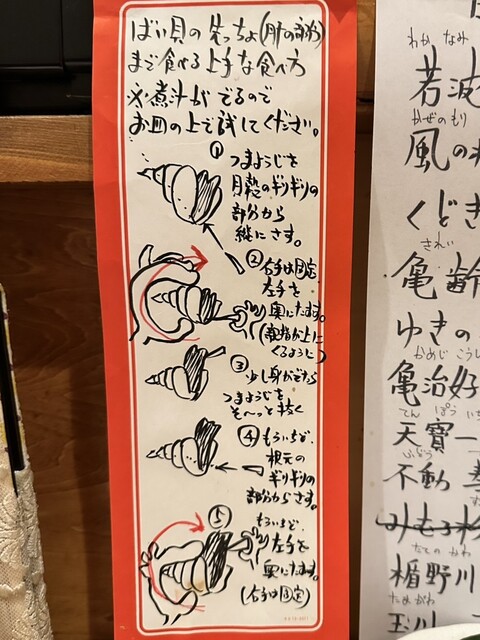 ばい貝の先っちょ(肝の部分)
まで食べる上手な食べ方
※煮汁がでるので
お皿の上で試してください。
①
つまようじを
貝殻のギリギリの
部分から
縦にさす。
②右手は固定
左手を
奥にたおす。
(親指が上に
くるように)
③
少し身がでたら
つまようじを
そ〜っと抜く
④もういちど、
根元の
ギリギリの
部分からさす。
⑤
もういちど、
左手を
奥にたおす。
(右手は固定)
わか なみ
若波
かぜのもり
風の
くどき
きれい
亀齢
ゆきの
かめじ こうし
亀治好
てん ぽう いち
天寶一
ふどう
不動
みむろ
たての かわ
楯野川
たまがわ
玉川